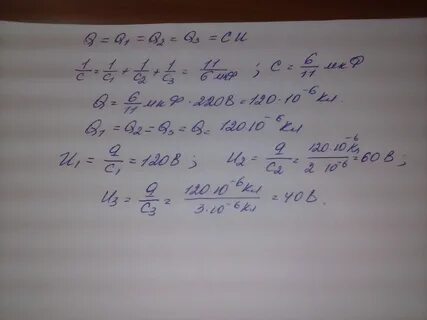 Q = Q₁ = Q₂ = Q₃ = CU
1/C = 1/C₁ + 1/C₂ + 1/C₃ = 11/6мкФ ; C = 6/11 мкФ
Q = 6/11 мкФ · 220В = 120 · 10⁻⁶ Кл.
Q₁ = Q₂ = Q₃ = Q = 120 10⁻⁶ Кл
U₁ = q/C₁ = 120В ; U₂ = q/C₂ = 120·10⁻⁶Кл/2 10⁻⁶ = 60В ;
U₃ = q/C₃ = 120 10⁻⁶Кл/3·10⁻⁶Кл = 40В.